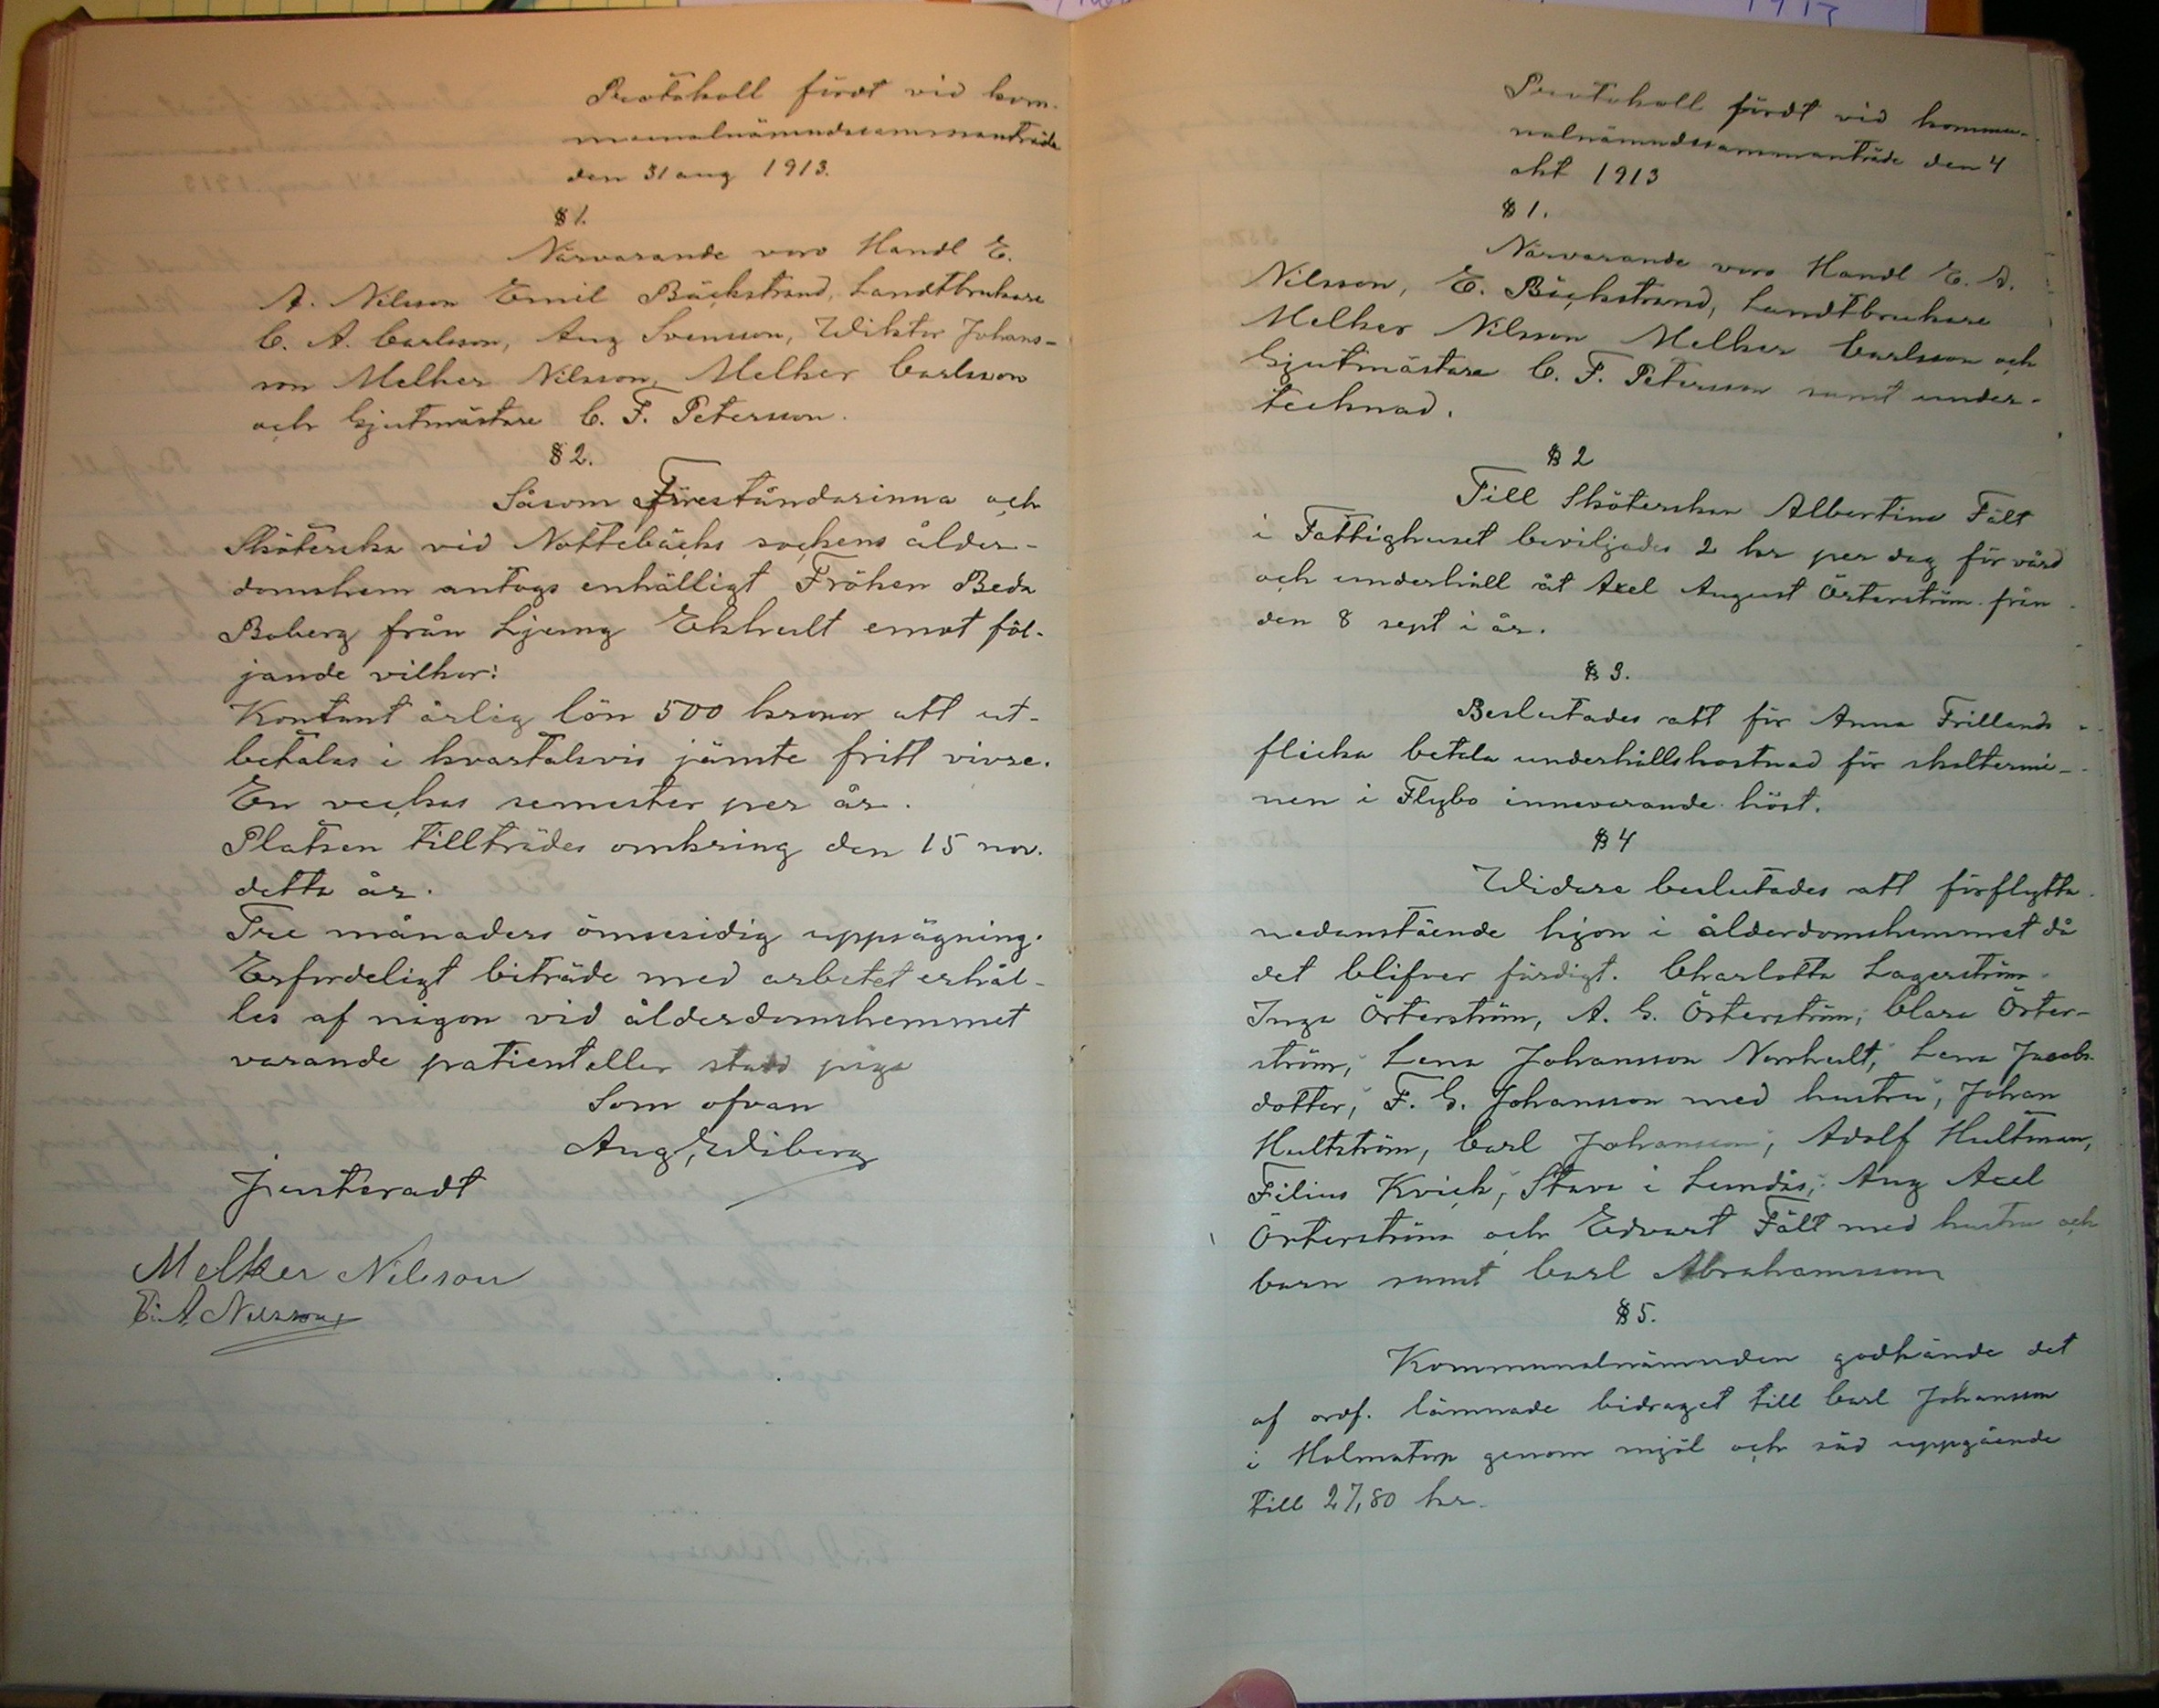 Protokoll fördt vid kom-
munalnämndssammanträde
den 31 aug 1913.
§ 1.
Närvarande voro Handl E.
A. Nilsson Emil Bäckstrand, Landtbrukare
C. A. Carlsson, Aug Svensson, Wiktor Johans-
son Melker Nilsson, Melker Carlsson
och Gjutmästare C. F. Petersson.
§ 2.
Såsom Föreståndarinna och
Sköterska vid Nottebäcks sockens ålder-
domshem antogs enhälligt Fröken Beda
Boberg från Ljung Ekhult emot föl-
jande vilkor:
Kontant årlig lön 500 kronor att ut-
betalas i kvartalsvis jämte fritt vivre.
En veckas semester per år.
Platsen tillträdes omkring den 15 nov.
detta år.
Tre månaders ömsesidig uppsägning.
Erforderligt biträde med arbetet erhål-
les af någon vid ålderdomshemmet
varande patient eller piga
Som ofvan
Aug. Wiberg
Justeradt
Melker Nilsson
E. A. Nilsson
Protokoll fördt vid kommu-
nalnämndssammanträde den 4
okt 1913
§ 1.
Närvarande voro Handl E. A.
Nilsson, E. Bäckstrand, Landtbrukare
Melker Nilsson Melker Carlsson och
Gjutmästare C. F. Petersson samt under-
tecknad.
§ 2
Till Sköterskan Albertina Fält
i Fattighuset beviljades 2 kr per dag för vård
och underhåll åt Axel August Österström från
den 8 sept i år.
§ 3.
Beslutades att för Anna Frillands
flicka betala underhållskostnad för skoltermi-
nen i Flybo innevarande höst.
§ 4
Widare beslutades att förflytta
nedanstående hjon i ålderdomshemmet då
det blifver färdigt. Charlotta Lagerström
Inga Österström, A. G. Österström, Clara Öster-
ström, Lena Johansson Norrhult, Lena Jacobs
dotter, F. G. Johansson med hustru, Johan
Hultström, Carl Johansson, Adolf Hultman,
Filius Kvick, Stava i Lundås, Aug Axel
Österström och Edvart Fält med hustru och
barn samt Carl Abrahamsson
§ 5.
Kommunalnämnden godkände det
af ordf. lämnade bidraget till Carl Johansson
i Holmatorp genom mjöl och säd uppgående
till 27,80 kr.